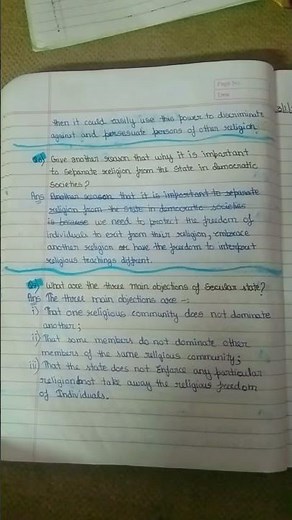 Page No.
Date
then it could easily use this power to discriminate
against and persecute persons of other religion.
Give another reason that why it is important
to Separate religion from the State in democratic
Societies?
Ans Another reason that it is important to separate
religion from the State in democratic societies
is because we need to protect the freedom of
individuals to exit from their religion, embrace
another religion or have the freedom to interpret
religious teachings diffrent.
What are the three main objections of Secular state?
Ans The three main objections are -:
i) That one religious community does not dominate
another;
ii) That some members do not dominate other
members of the same religious community;
iii) That the state does not Enforce any particular
religion not take away the religious freedom
of Individuals.